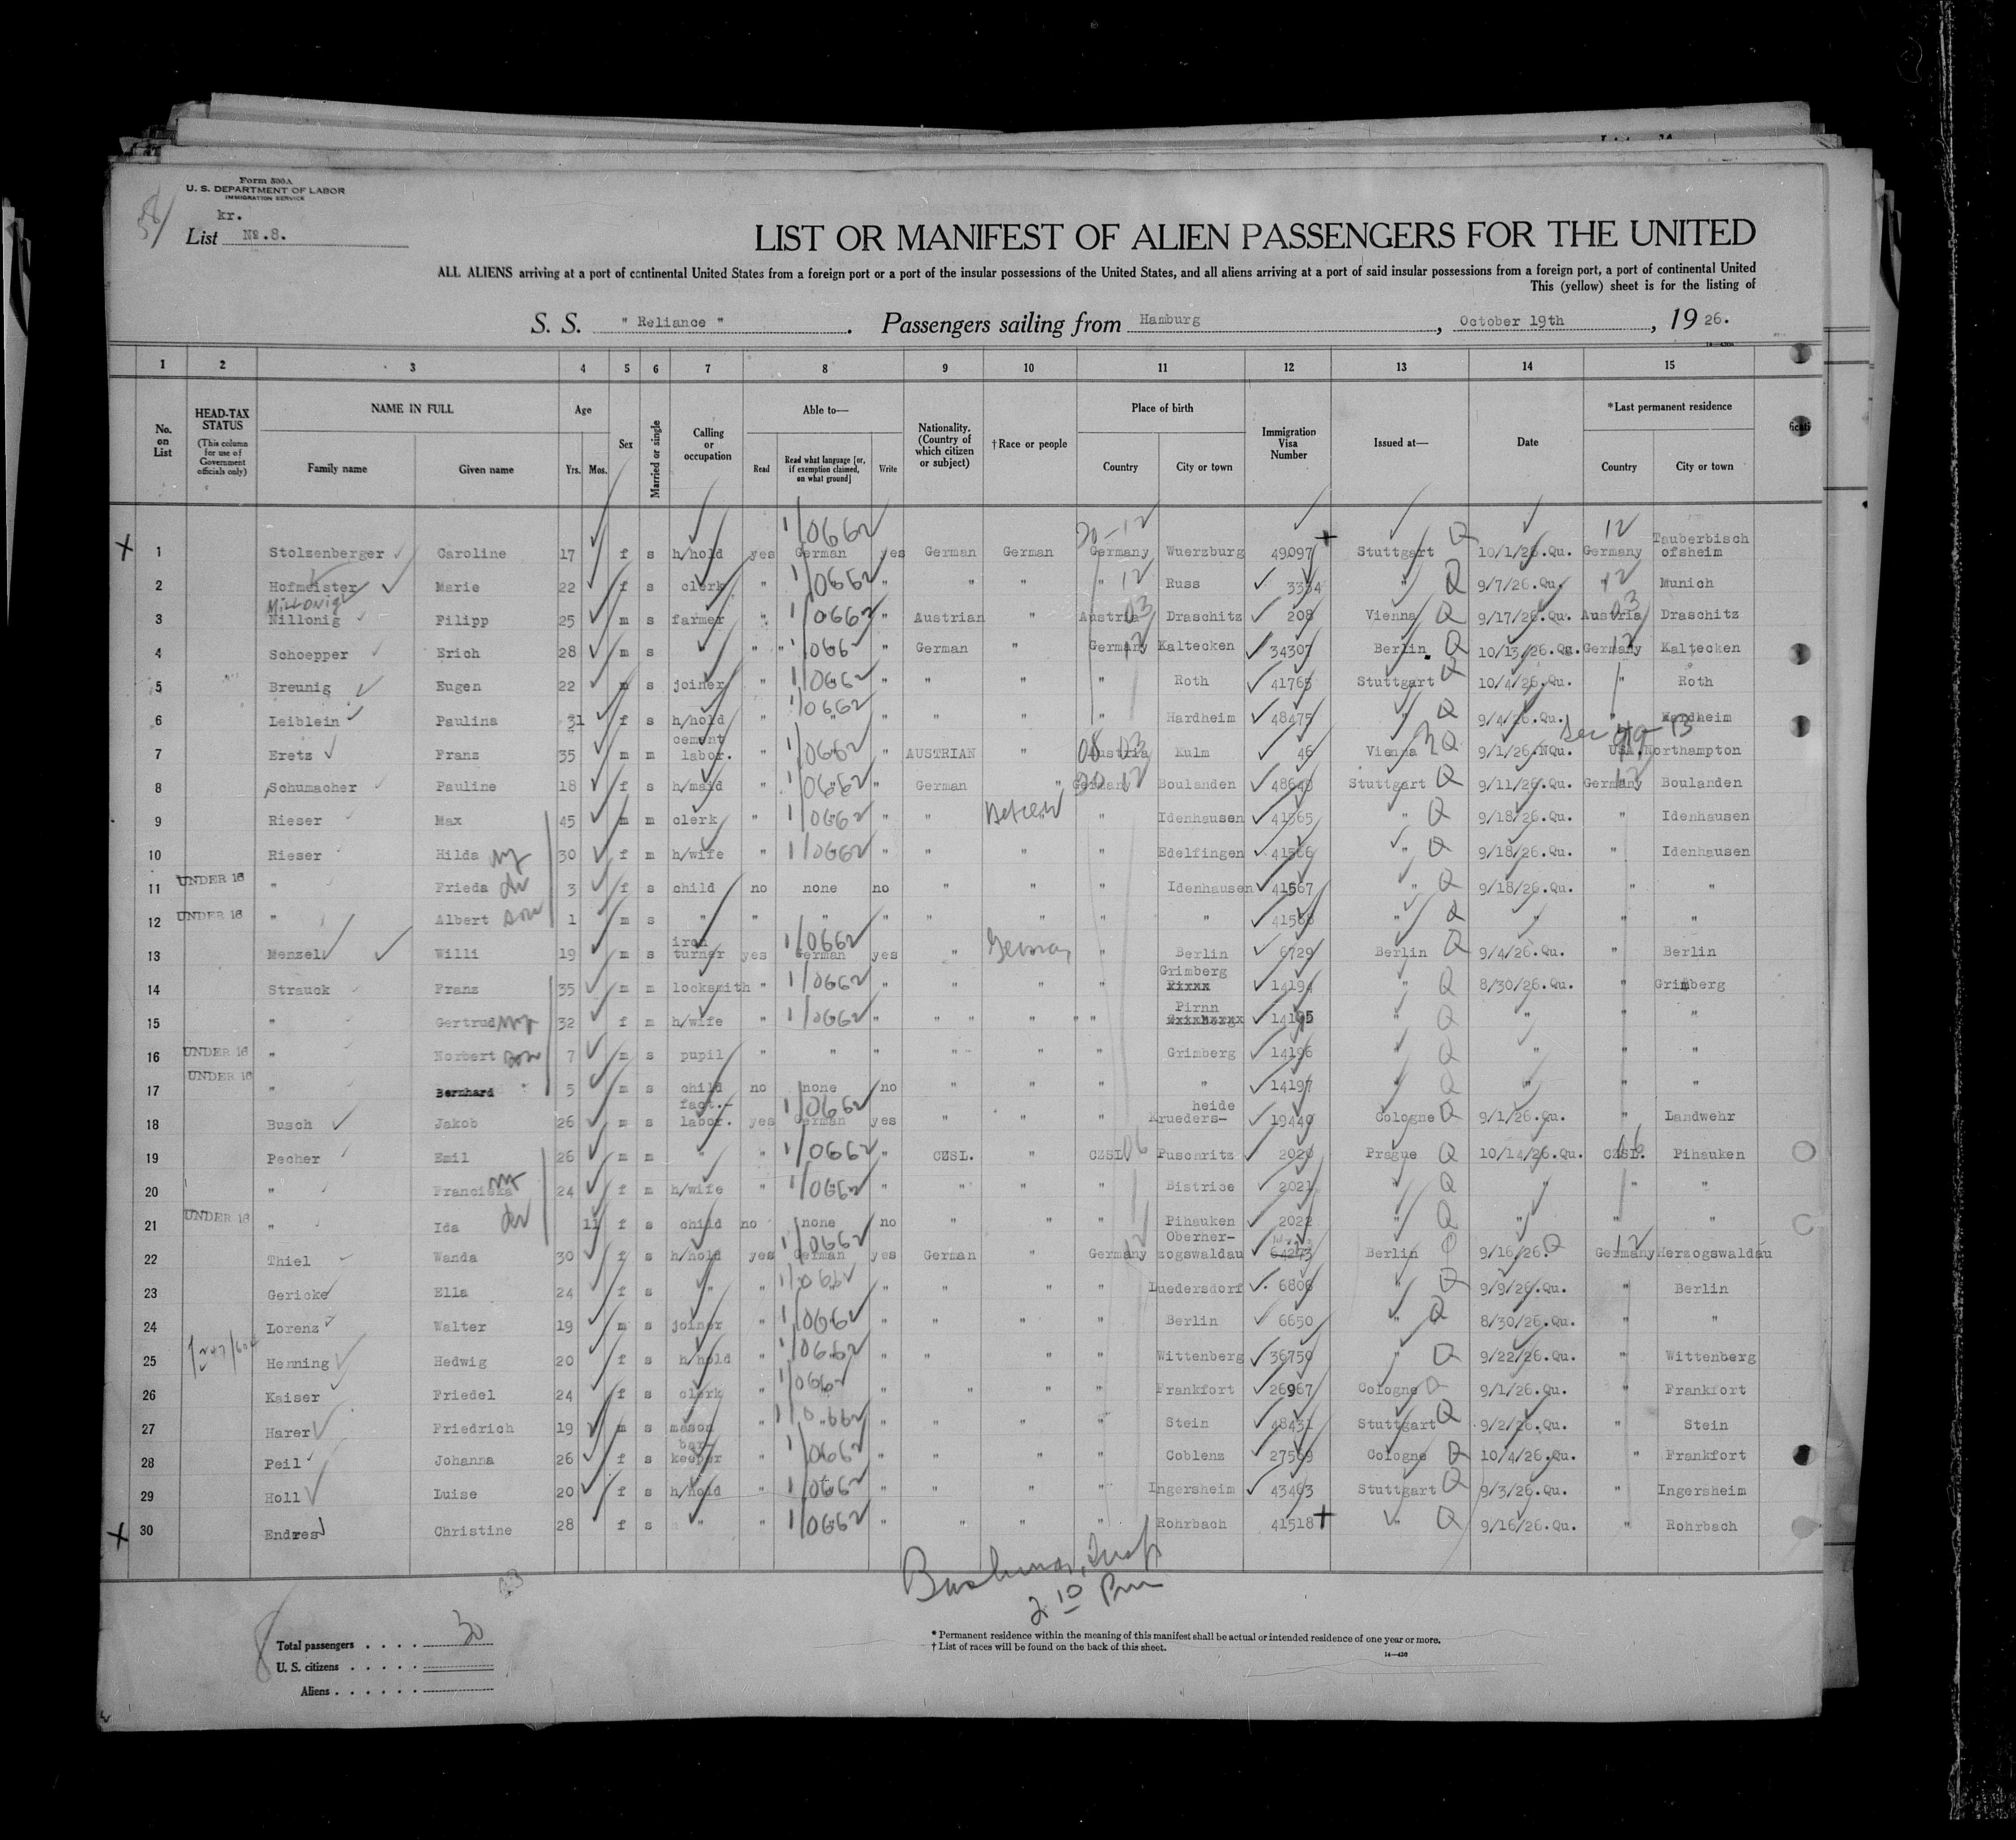 Form 500A
U. S. DEPARTMENT OF LABOR
IMMIGRATION SERVICE
kr.
List No.8.
LIST OR MANIFEST OF ALIEN PASSENGERS FOR THE UNITED
ALL ALIENS arriving at a port of continental United States from a foreign port or a port of the insular possessions of the United States, and all aliens arriving at a port of said insular possessions from a foreign port, a port of continental United
This (yellow) sheet is for the listing of
S. S. " Reliance " . Passengers sailing from Hamburg , October 19th , 19 26.
1 2 3 4 5 6 7 8 9 10 11 12 13 14 15
No. on List HEAD-TAX STATUS (This column for use of Government officials only) NAME IN FULL Family name Given name Age Yrs. Mos. Sex Married or single Calling or occupation Able to— Read Read what language [or, if exemption claimed, on what ground] Write Nationality. (Country of which citizen or subject) †Race or people Place of birth Country City or town Immigration Visa Number Issued at— Date *Last permanent residence Country City or town
1 Stolzenberger Caroline 17 f s h/hold yes German yes German German Germany Wuerzburg 49097 Stuttgart Q 10/1/26.Qu. Germany Tauberbisch ofsheim
2 Hofmeister Marie 22 f s clerk " " " " " " Russ 3334 " Q 9/7/26.Qu. " Munich
Millonig
3 Nillonig Filipp 25 m s farmer " " Austrian " Austria Draschitz 208 Vienna Q 9/17/26.Qu. Austria Draschitz
4 Schoepper Erich 28 m s " " " " German " Germany Kaltecken 34307 Berlin. Q 10/13/26.Qu. Germany Kaltecken
5 Breunig Eugen 22 m s joiner " " " " " " Roth 41765 Stuttgart Q 10/4/26.Qu. " Roth
6 Leiblein Paulina 31 f s h/hold " " " " " " Hardheim 48475 " Q 9/4/26.Qu. " Hardheim
7 Eretz Franz 35 m m cement labor. " " " AUSTRIAN " Austria Kulm 46 Vienna Q 9/1/26.NQu. USA. Northampton
8 Schumacher Pauline 18 f s h/maid " " " German " Germany Boulanden 48640 Stuttgart Q 9/11/26.Qu. Germany Boulanden
9 Rieser Max 45 m m clerk " " " " Hebrew " Idenhausen 41565 " Q 9/18/26.Qu. " Idenhausen
10 Rieser Hilda 30 f m h/wife " " " " " " Edelfingen 41566 " Q 9/18/26.Qu. " Idenhausen
11 UNDER 16 " Frieda 3 f s child no none no " " " Idenhausen 41567 " Q 9/18/26.Qu. " "
12 UNDER 16 " Albert son 1 m s " " " " " " " " 41568 " Q " " "
13 Menzel Willi 19 m s iron turner yes German yes " German " Berlin 6729 Berlin Q 9/4/26.Qu. " Berlin
14 Strauck Franz 35 m m locksmith " " " " " " Grimberg 14194 " Q 8/30/26.Qu. " Grimberg
15 " Gertrud 32 f m h/wife " " " " " " Pirnn 14195 " Q " " "
16 UNDER 16 " Norbert son 7 m s pupil " " " " " " Grimberg 14196 " Q " " "
17 UNDER 16 " Bernhard 5 m s child no none no " " " " 14197 " Q " " "
18 Busch Jakob 26 m s fact.- labor. yes German yes " " " heide Krueders- 19449 Cologne Q 9/1/26.Qu. " Landwehr
19 Pecher Emil 26 m m " " " " CZSL. " CZSL. Puschritz 2020 Prague Q 10/14/26.Qu. CZSL. Pihauken
20 " Franciska 24 f m h/wife " " " " " " Bistrice 2021 " Q " " "
21 UNDER 16 " Ida 11 f s child no none no " " " Pihauken 2022 " Q " " "
22 Thiel Wanda 30 f s h/hold yes German yes German " Germany Oberher- zogswaldau 64273 Berlin 9/16/26. Q Germany Herzogswaldau
23 Gericke Ella 24 f s " " " " " " " Luedersdorf 6806 " Q 9/9/26.Qu. " Berlin
24 Lorenz Walter 19 m s joiner " " " " " " Berlin 6650 " Q 8/30/26.Qu. " "
25 Henning Hedwig 20 f s h/hold " " " " " " Wittenberg 36750 " Q 9/22/26.Qu. " Wittenberg
26 Kaiser Friedel 24 f s clerk " " " " " " Frankfort 26967 Cologne Q 9/1/26.Qu. " Frankfort
27 Harer Friedrich 19 m s mason " " " " " " Stein 48431 Stuttgart Q 9/2/26.Qu. " Stein
28 Peil Johanna 26 f s bar- keeper " " " " " " Coblenz 27569 Cologne Q 10/4/26.Qu. " Frankfort
29 Holl Luise 20 f s h/hold " " " " " " Ingersheim 43463 Stuttgart Q 9/3/26.Qu. " Ingersheim
30 Endres Christine 28 f s " " " " " " " Rohrbach 41518 " Q 9/16/26.Qu. " Rohrbach
2 10 Pm
Total passengers . . . . 30
U. S. citizens . . . . .
Aliens . . . . . .
* Permanent residence within the meaning of this manifest shall be actual or intended residence of one year or more.
† List of races will be found on the back of this sheet.
14—430